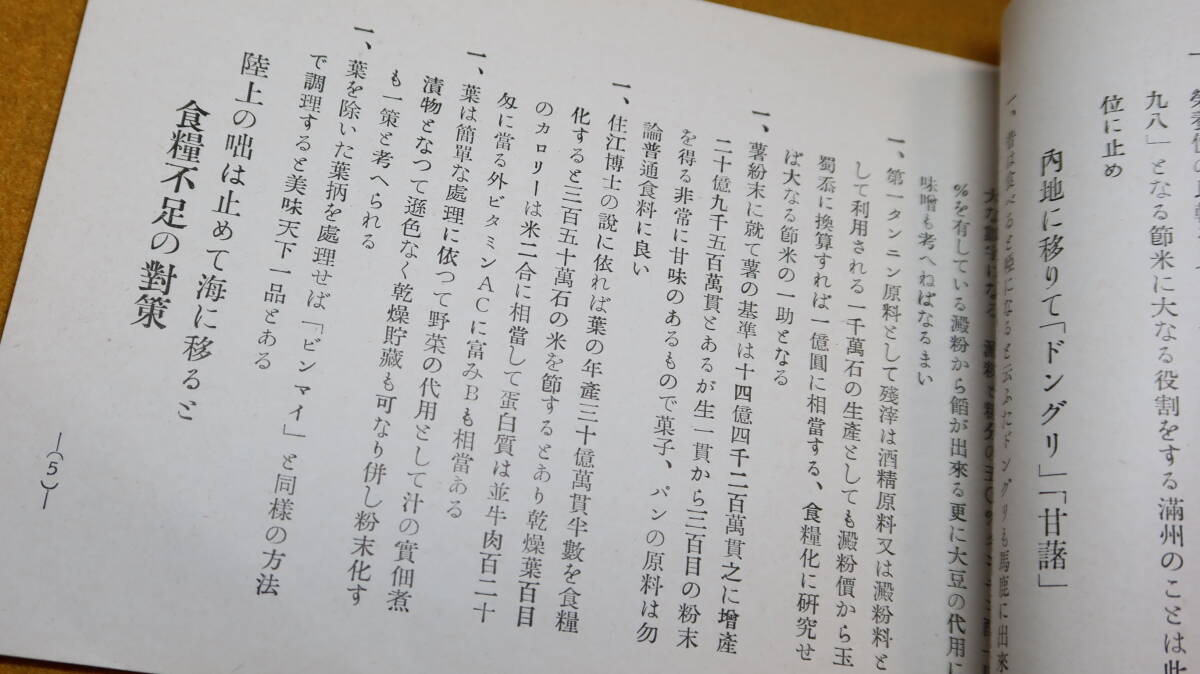 九八」となる節米に大なる役割をする滿州のことは此
位に止め
內地に移りて「ドングリ」「甘藷」
一、昔は食べると唖になると云ふたドングリも馬鹿に出來
%を有している澱粉から餡が出來る更に大豆の代用に
味噌も考へねばなるまい
一、第一タンニン原料として殘滓は酒精原料又は澱粉料と
して利用される一千萬石の生產としても澱粉價から玉
蜀黍に換算すれば一億圓に相當する、食糧化に硏究せ
ば大なる節米の一助となる
一、薯粉末に就て薯の基準は十四億四千二百萬貫之に增產
二十億九千五百萬貫とあるが生一貫から三百目の粉末
を得る非常に甘味のあるもので菓子、パンの原料は勿
論普通食料に良い
一、住江博士の說に依れば葉の年產三十億萬貫半數を食糧
化すると三百五十萬石の米を節するとあり乾燥葉百目
のカロリーは米二合に相當して蛋白質は並牛肉百二十
匁に當る外ビタミンACに富みBも相當ある
一、葉は簡單な處理に依つて野菜の代用として汁の實佃煮
漬物となつて遜色なく乾燥貯藏も可なり併し粉末化す
も一策と考へられる
一、葉を除いた葉柄を處理せば「ビンマイ」と同樣の方法
で調理すると美味天下一品とある
陸上の咄は止めて海に移ると
食糧不足の對策
—(5)—